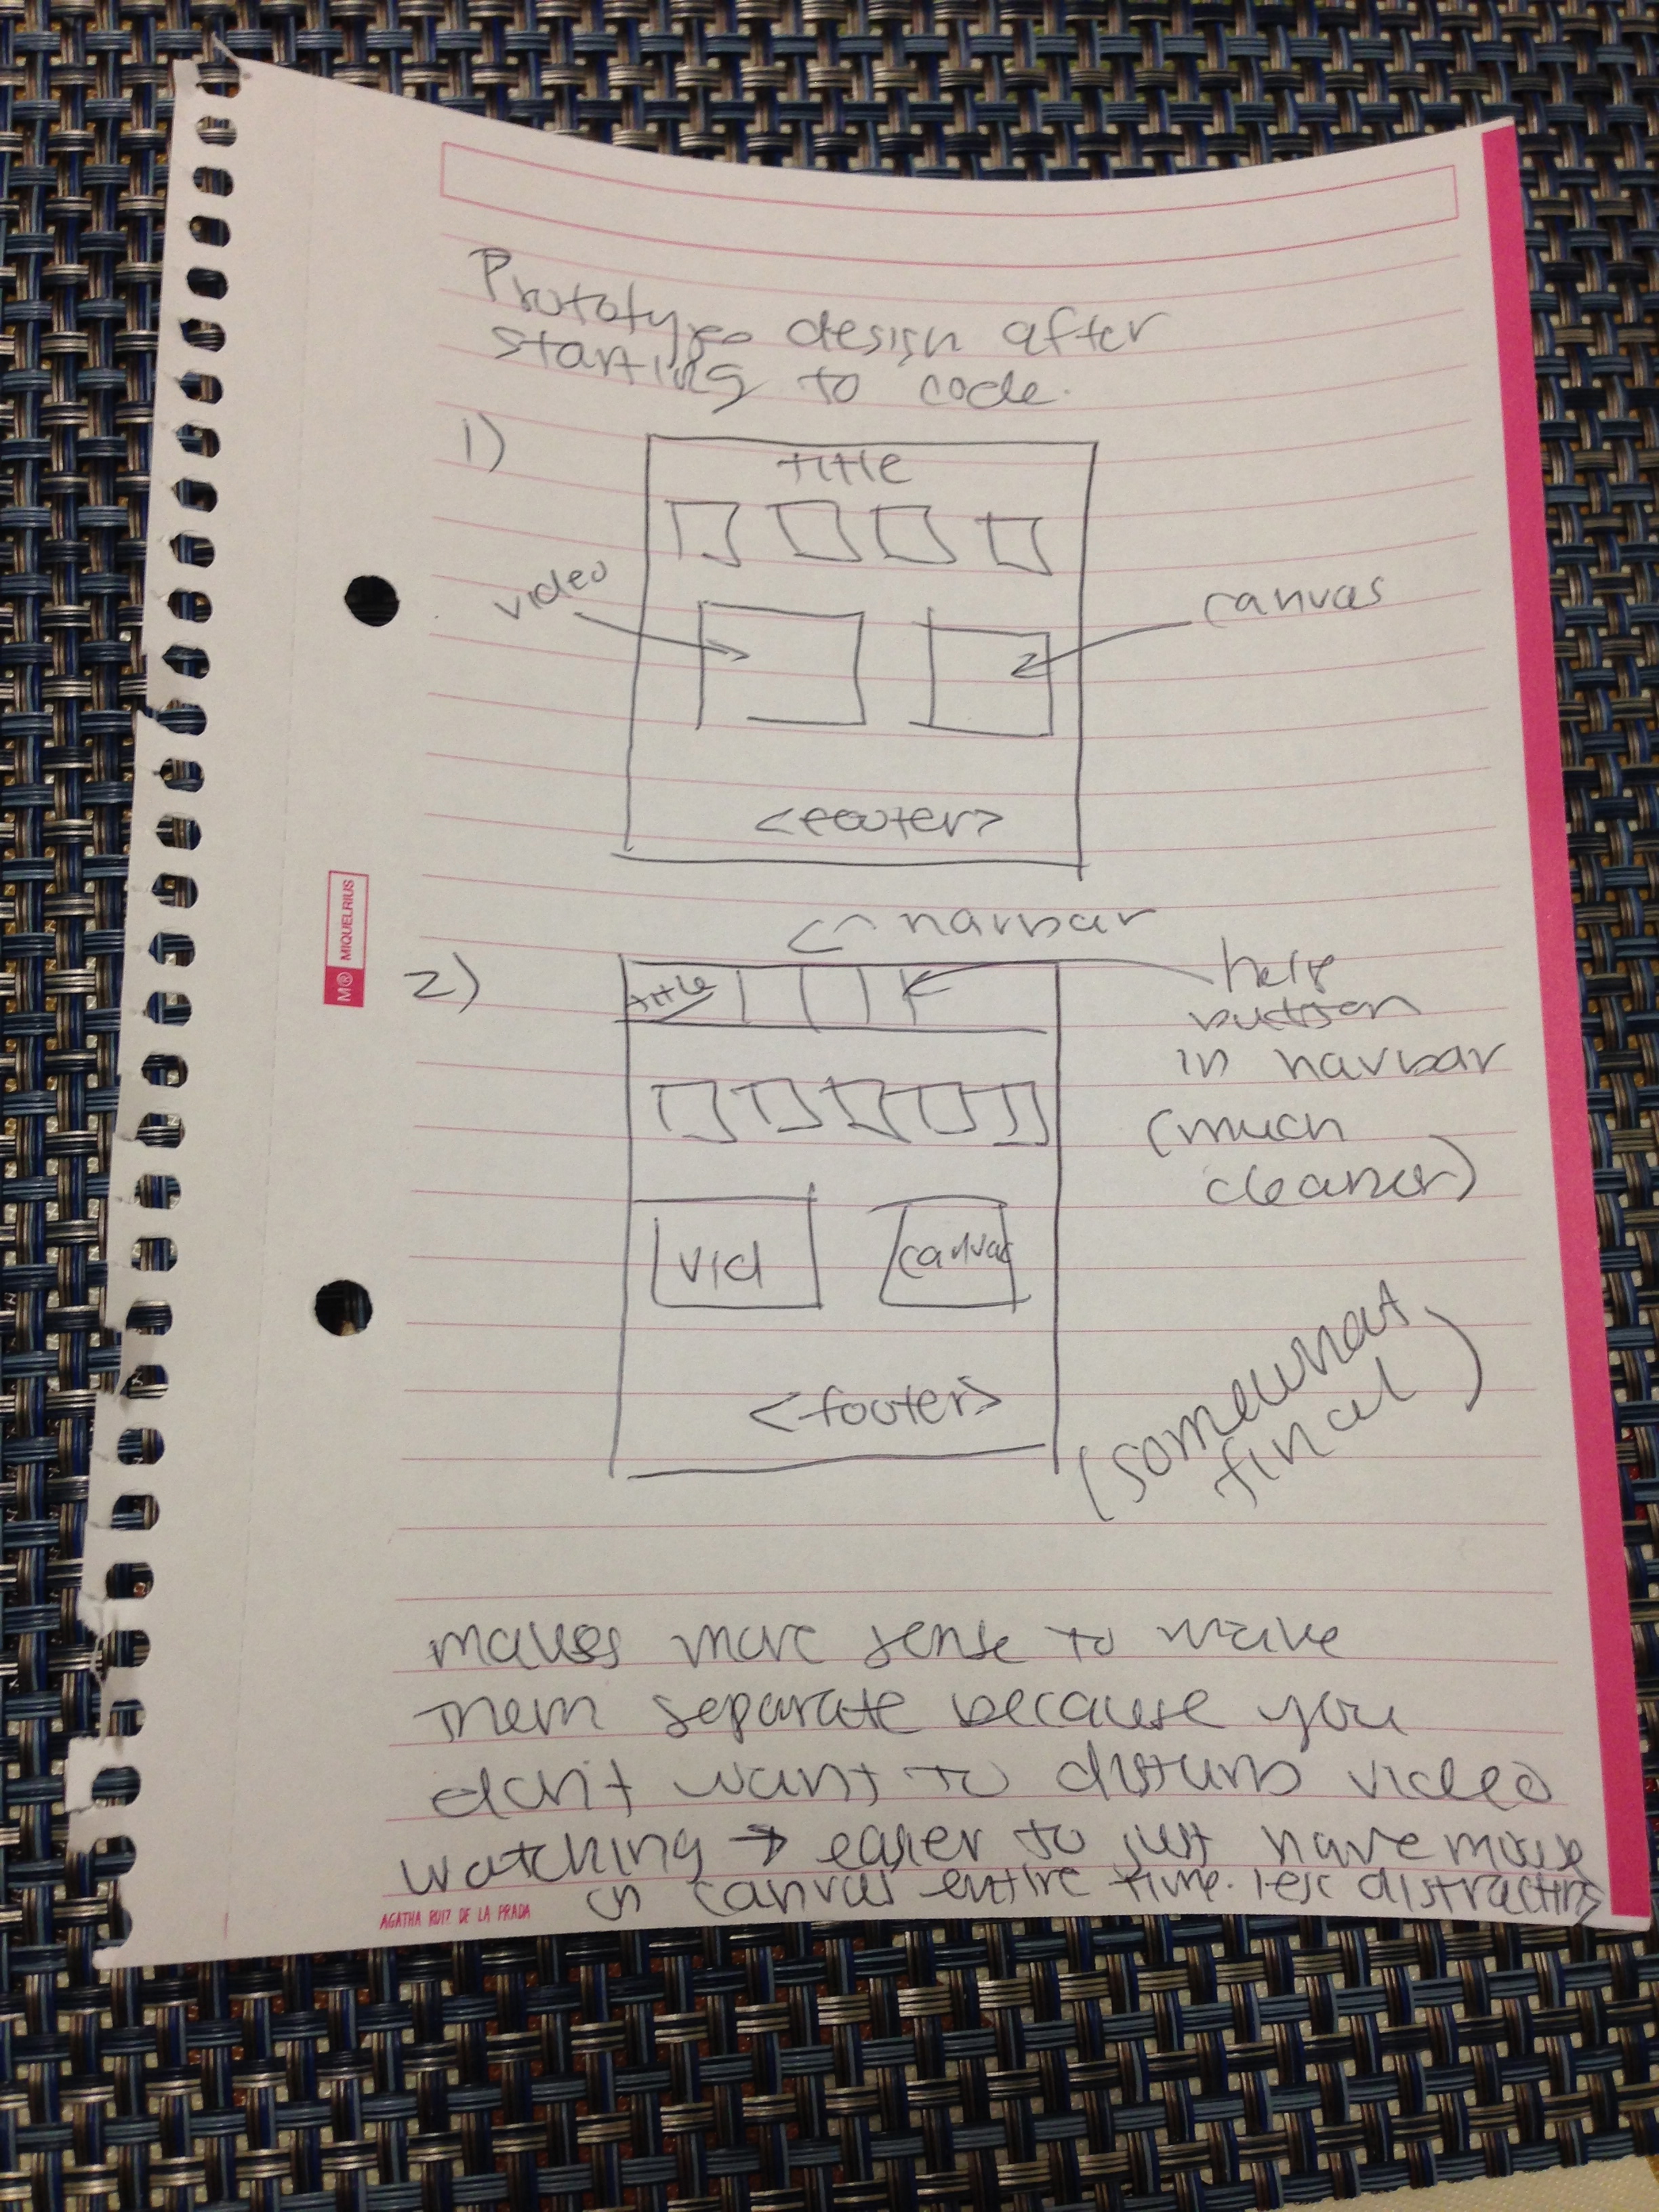 Prototype design after
starting to code.
1)
title
video
canvas
<footer>
<- navbar
2)
title
help
button
in navbar
(much
cleaner)
vid
canvas
<footer>
(somewhat
final)
makes more sense to make
them separate because you
don't want to disturb video
watching → easier to just have mouse
in canvas entire time. less distracting
M® MIQUELRIUS
AGATHA RUIZ DE LA PRADA